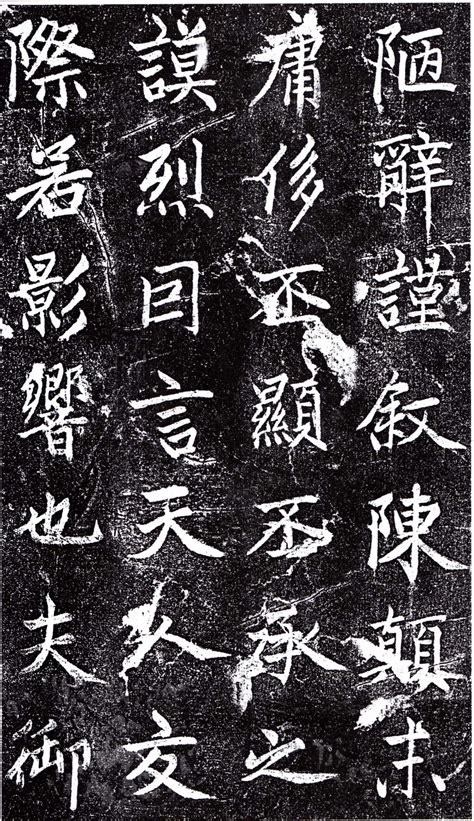 陋辭謹叙陳顛末
庸侈丕顯丕承之
謨烈囙言天人交
際若影響也夫御